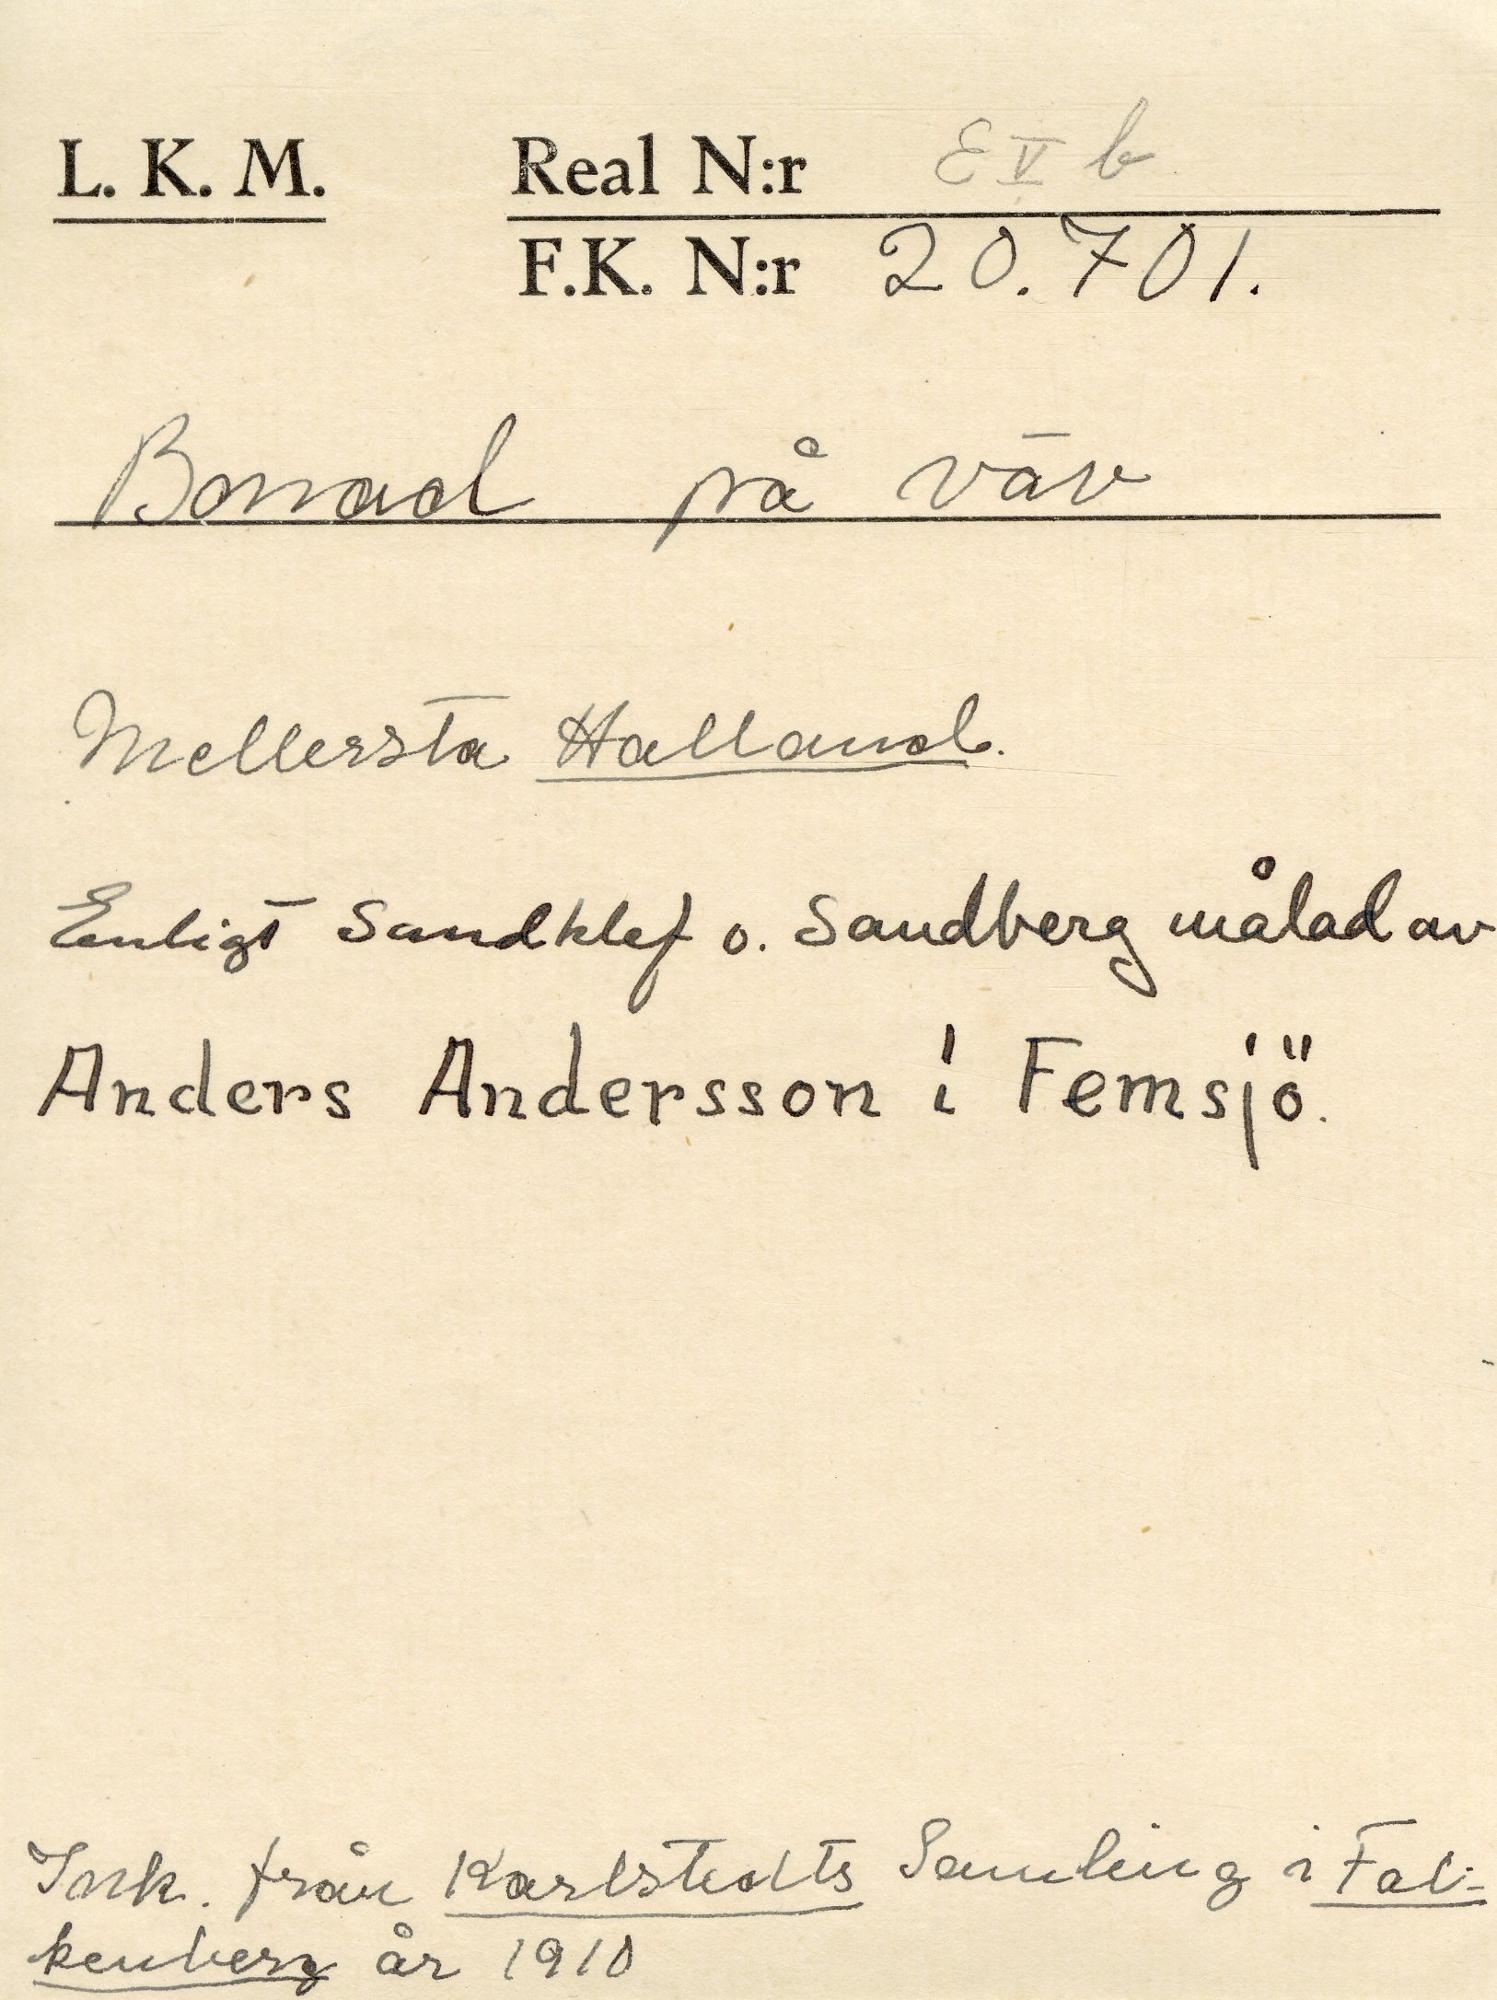 L. K. M. Real N:r E V b
F.K. N:r 20.701.
Bonad på väv
Mellersta Halland.
Enligt Sandklef o. Sandberg målad av
Anders Andersson i Femsjö.
Ink. från Karlstedts Samling i Fal-
kenberg år 1910